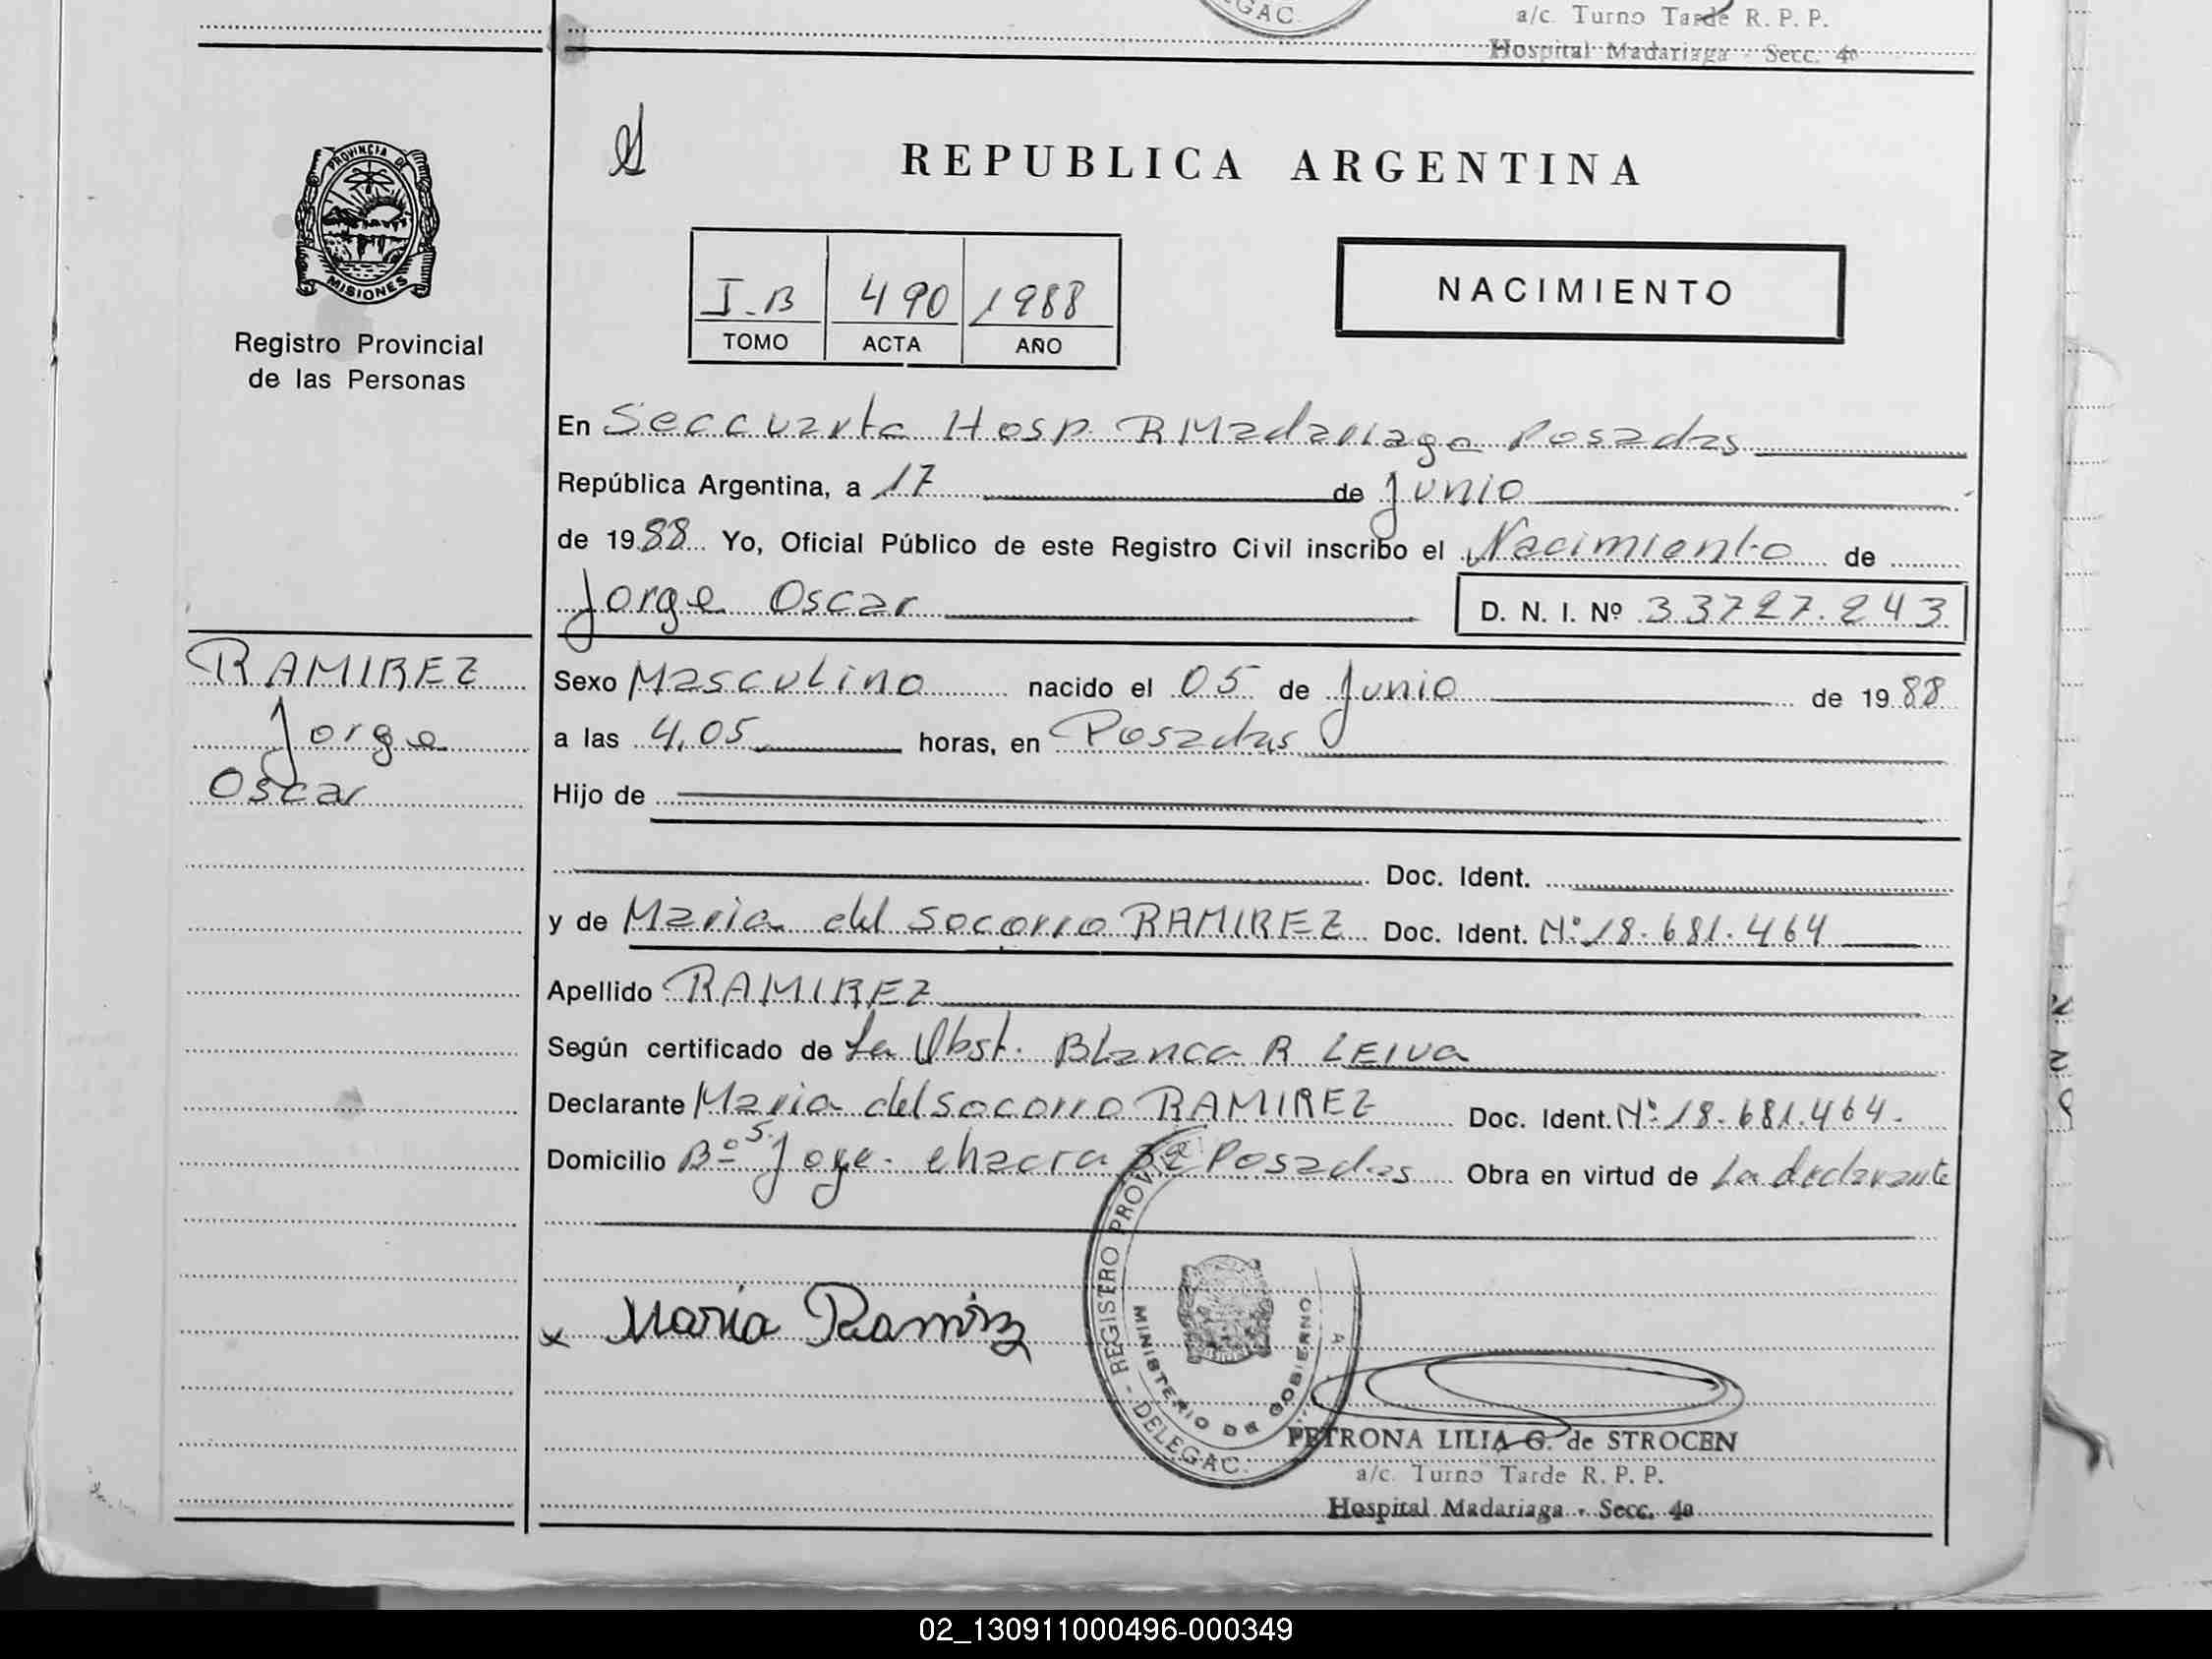 GAC.
a/c. Turno Tarde R. P. P.
Hospital Madariaga - Secc. 4a
PROVINCIA DE
MISIONES
Registro Provincial
de las Personas
REPUBLICA ARGENTINA
I-B 490 1988
TOMO ACTA AÑO
NACIMIENTO
En Seccuarta Hosp. R Madariaga Posadas
República Argentina, a 17 de Junio
de 1988 Yo, Oficial Público de este Registro Civil inscribo el Nacimiento de
Jorge Oscar D. N. I. Nº 33727.243
RAMIREZ
Jorge
Oscar
Sexo Masculino nacido el 05 de Junio de 1988
a las 4,05 horas, en Posadas
Hijo de
Doc. Ident.
y de Maria del Socorro RAMIREZ Doc. Ident. Nº 18.681.464
Apellido RAMIREZ
Según certificado de La Obst. Blanca R LEIVA
Declarante Maria del Socorro RAMIREZ Doc. Ident. Nº 18.681.464.
Domicilio Bº S. Jorge chacra 32 Posadas Obra en virtud de La declarante
x Maria Ramirez
REGISTRO PROVINC
MINISTERIO DE GOBIERNO
DELEGAC.
PETRONA LILIA G. de STROCEN
a/c. Turno Tarde R. P. P.
Hospital Madariaga - Secc. 4a
02_130911000496-000349